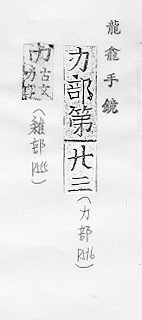 龍龕手鏡
力部第廿三
（力部P516）
力古文
（雜部P155）